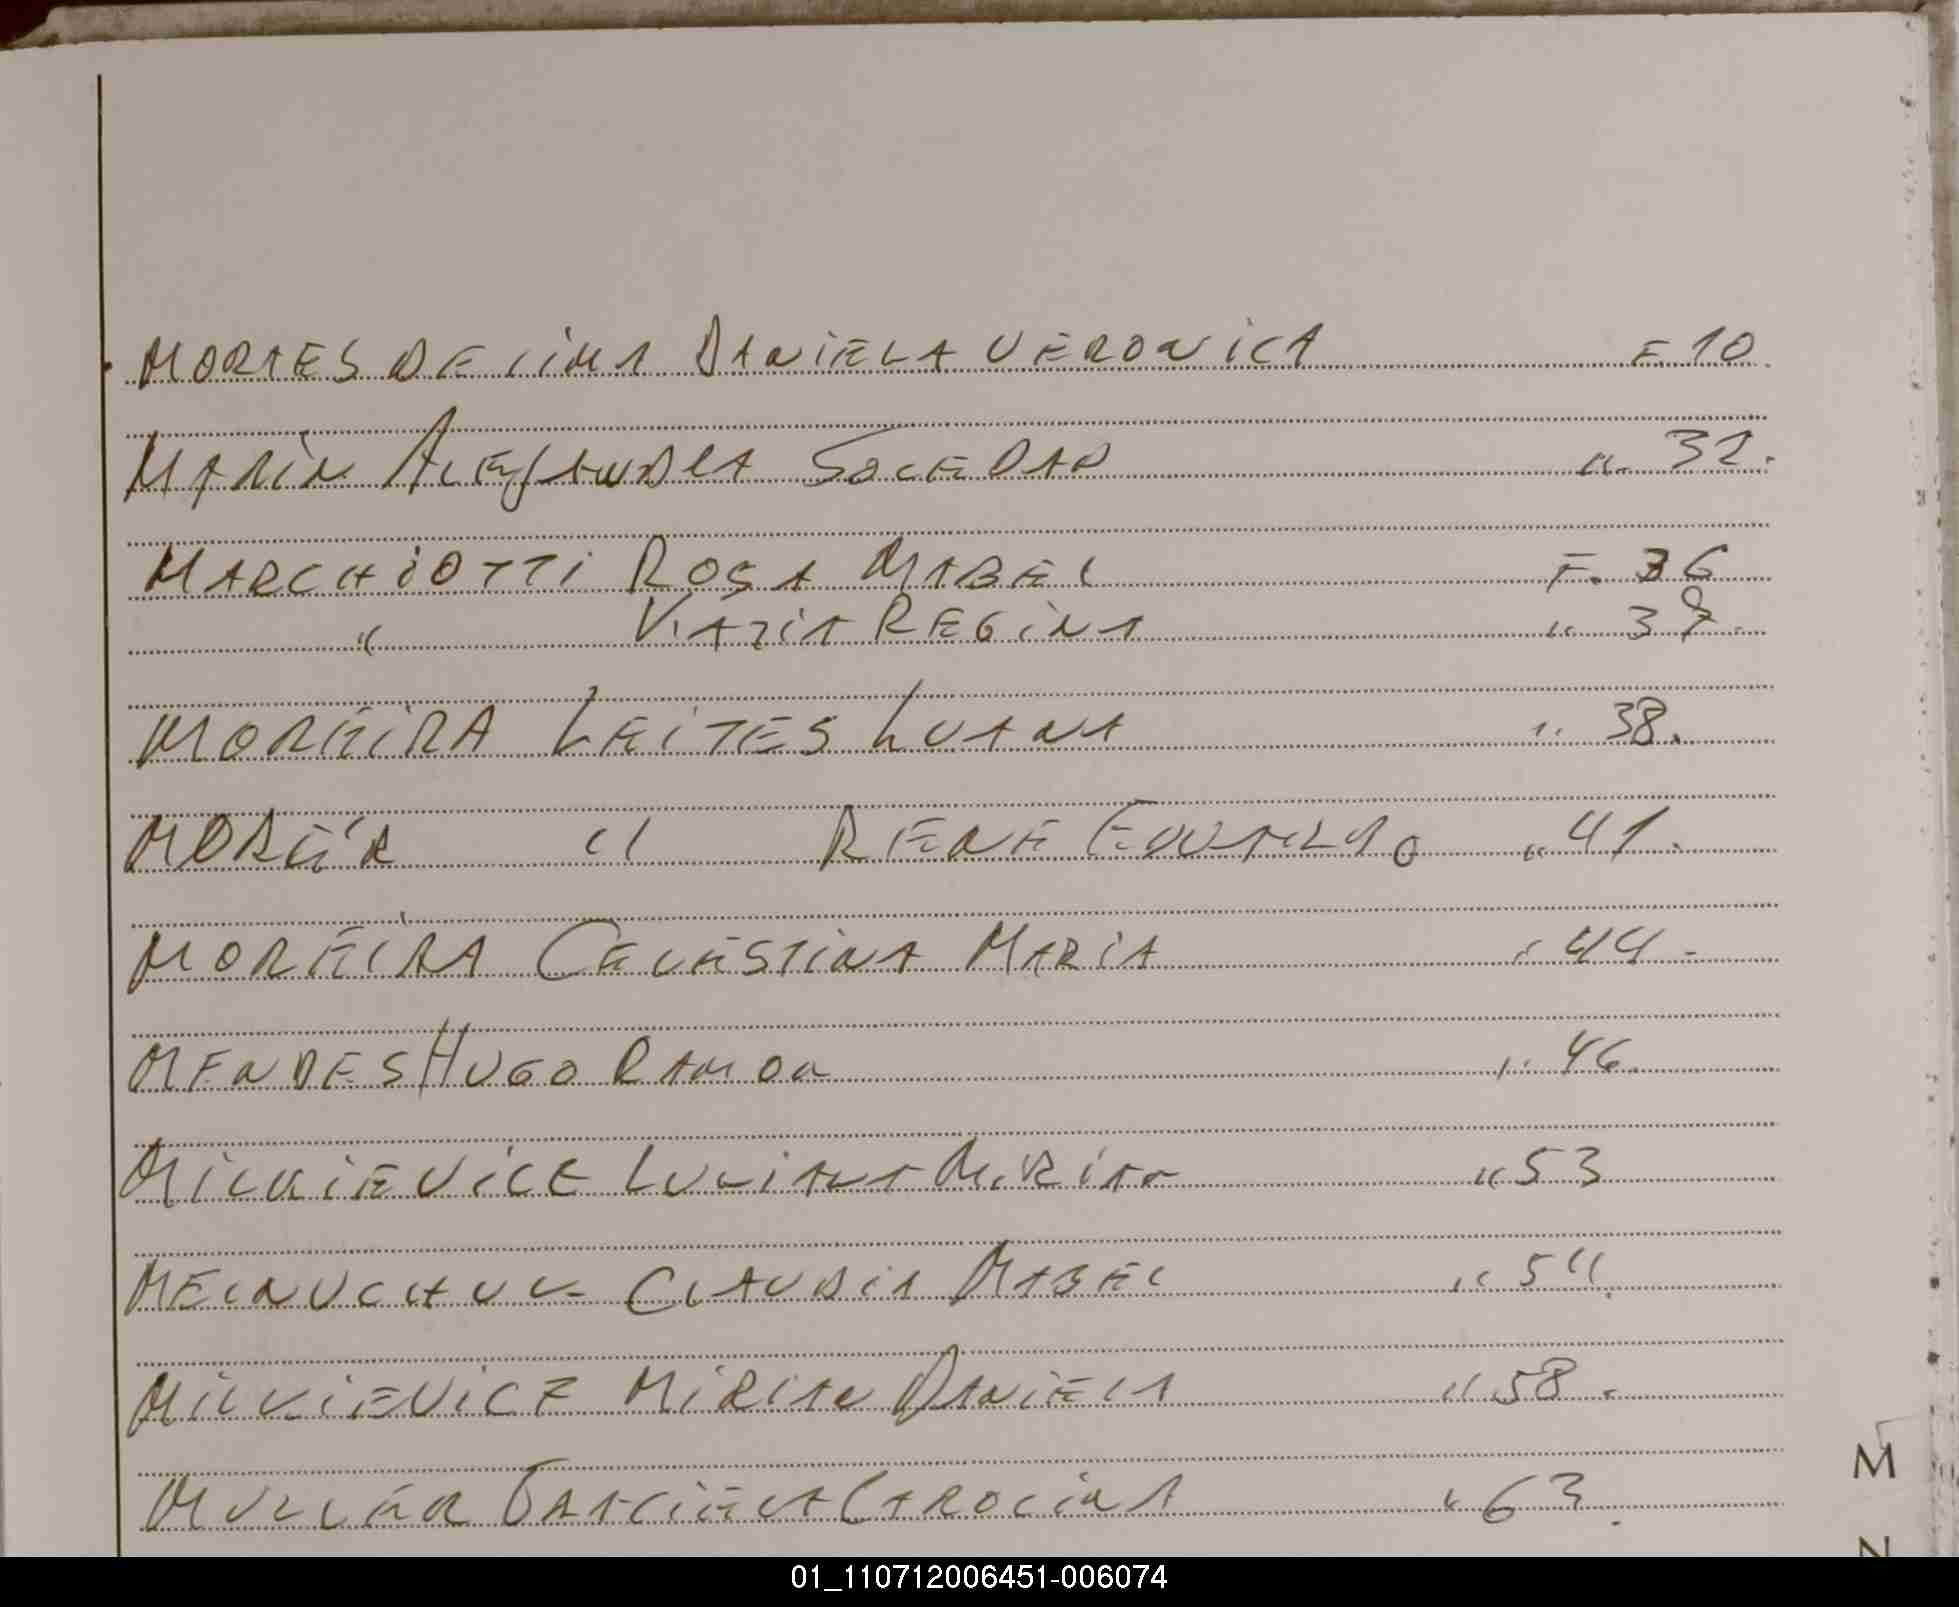 MORAES DE LIMA DANIELA VERONICA F. 10.
MARIN ALEJANDRA SOLEDAD " 32.
MARCHIOTTI ROSA MABEL F. 36
" KATIA REGINA " 37.
MOREIRA LEITES LUANA " 38.
MOREIR " RENE EDUARDO " 41.
MOREIRA CELESTINA MARIA " 44.
MENDES HUGO RAMON " 46.
MILKIEVICZ LUCIANA MIRIAN " 53
CLAUDIA MABEL " 54.
MILKIEVICZ MIRIAN DANIELA " 58.
MULLER GRACIELA CAROLINA " 63.
M
N
01_110712006451-006074